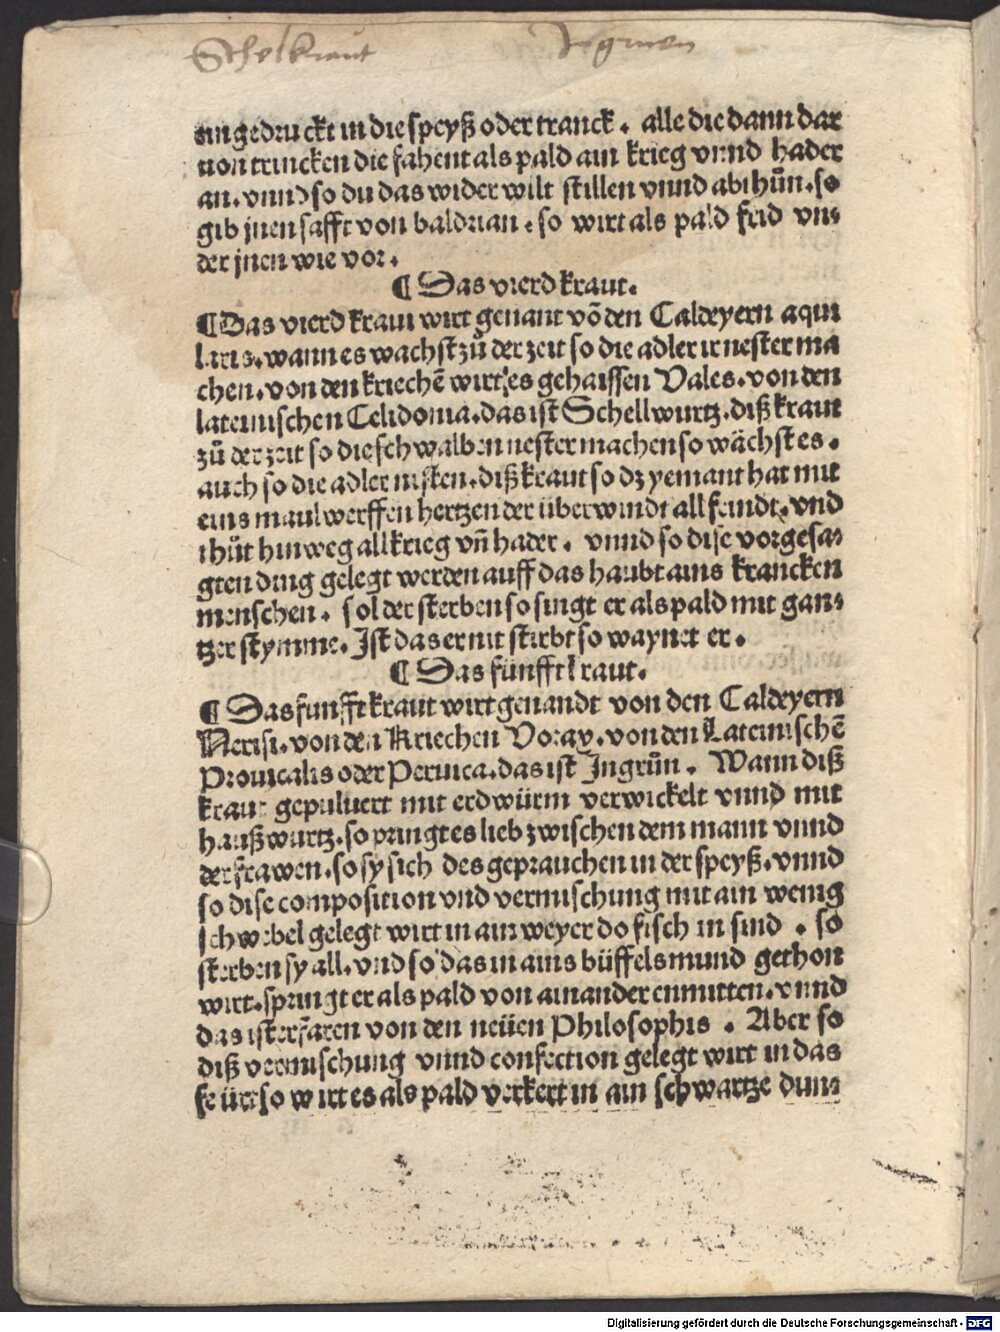 Schelkraut Ingruen
eingedruckt in die speyß oder tranck. alle die dann dar
von trincken die fahent als pald ain krieg vnnd hader
an. vnnd so du das wider wilt stillen vnnd abthůn. so
gib jnen safft von baldrian. so wirt als pald frid vn⸗
der jnen wie vor.
¶ Das vierd kraut.
¶ Das vierd kraut wirt genant võ den Caldeyern aqui
laris. wann es wachst zů der zeit so die adler ir nester ma
chen. von den kriechẽ wirt es gehaissen Vales. von den
lateinischen Celidonia. das ist Schellwurtz. diß kraut
zů der zeit so die schwalben nester machen so wächst es.
auch so die adler nisten. diß kraut so dz yemant hat mit
eins maulwerffen hertzen der überwindt all feindt. vnd
thůt hinweg all krieg vñ hader. vnnd so dise vorgesa⸗
gten ding gelegt werden auff das haubt ains krancken
menschen. sol der sterben so singt er als pald mit gan⸗
tzer stymme. Ist das er nit stirbt so waynet er.
¶ Das fünfft kraut.
¶ Das funfft kraut wirt genandt von den Caldeyern
Nerisi. von den Kriechen Voray. von den Lateinischẽ
Prouicalis oder Peruica. das ist Ingrůn. Wann diß
kraut gepuluert mit erdwürm verwickelt vnnd mit
haußwurtz. so pringt es lieb zwischen dem mann vnnd
der frawen. so sy sich des geprauchen in der speyß. vnnd
so dise composition vnd vermischung mit ain wenig
schwebel gelegt wirt in ain weyer do fisch in sind. so
sterben sy all. vnd so das in ains büffels mund gethon
wirt. springt er als pald von ainander enmitten. vnnd
das ist erfaren von den neüen Philosophis. Aber so
diß vermischung vnnd confection gelegt wirt in das
feür so wirt es als pald verkert in ain schwartze dun⸗
Digitalisierung gefördert durch die Deutsche Forschungsgemeinschaft - DFG